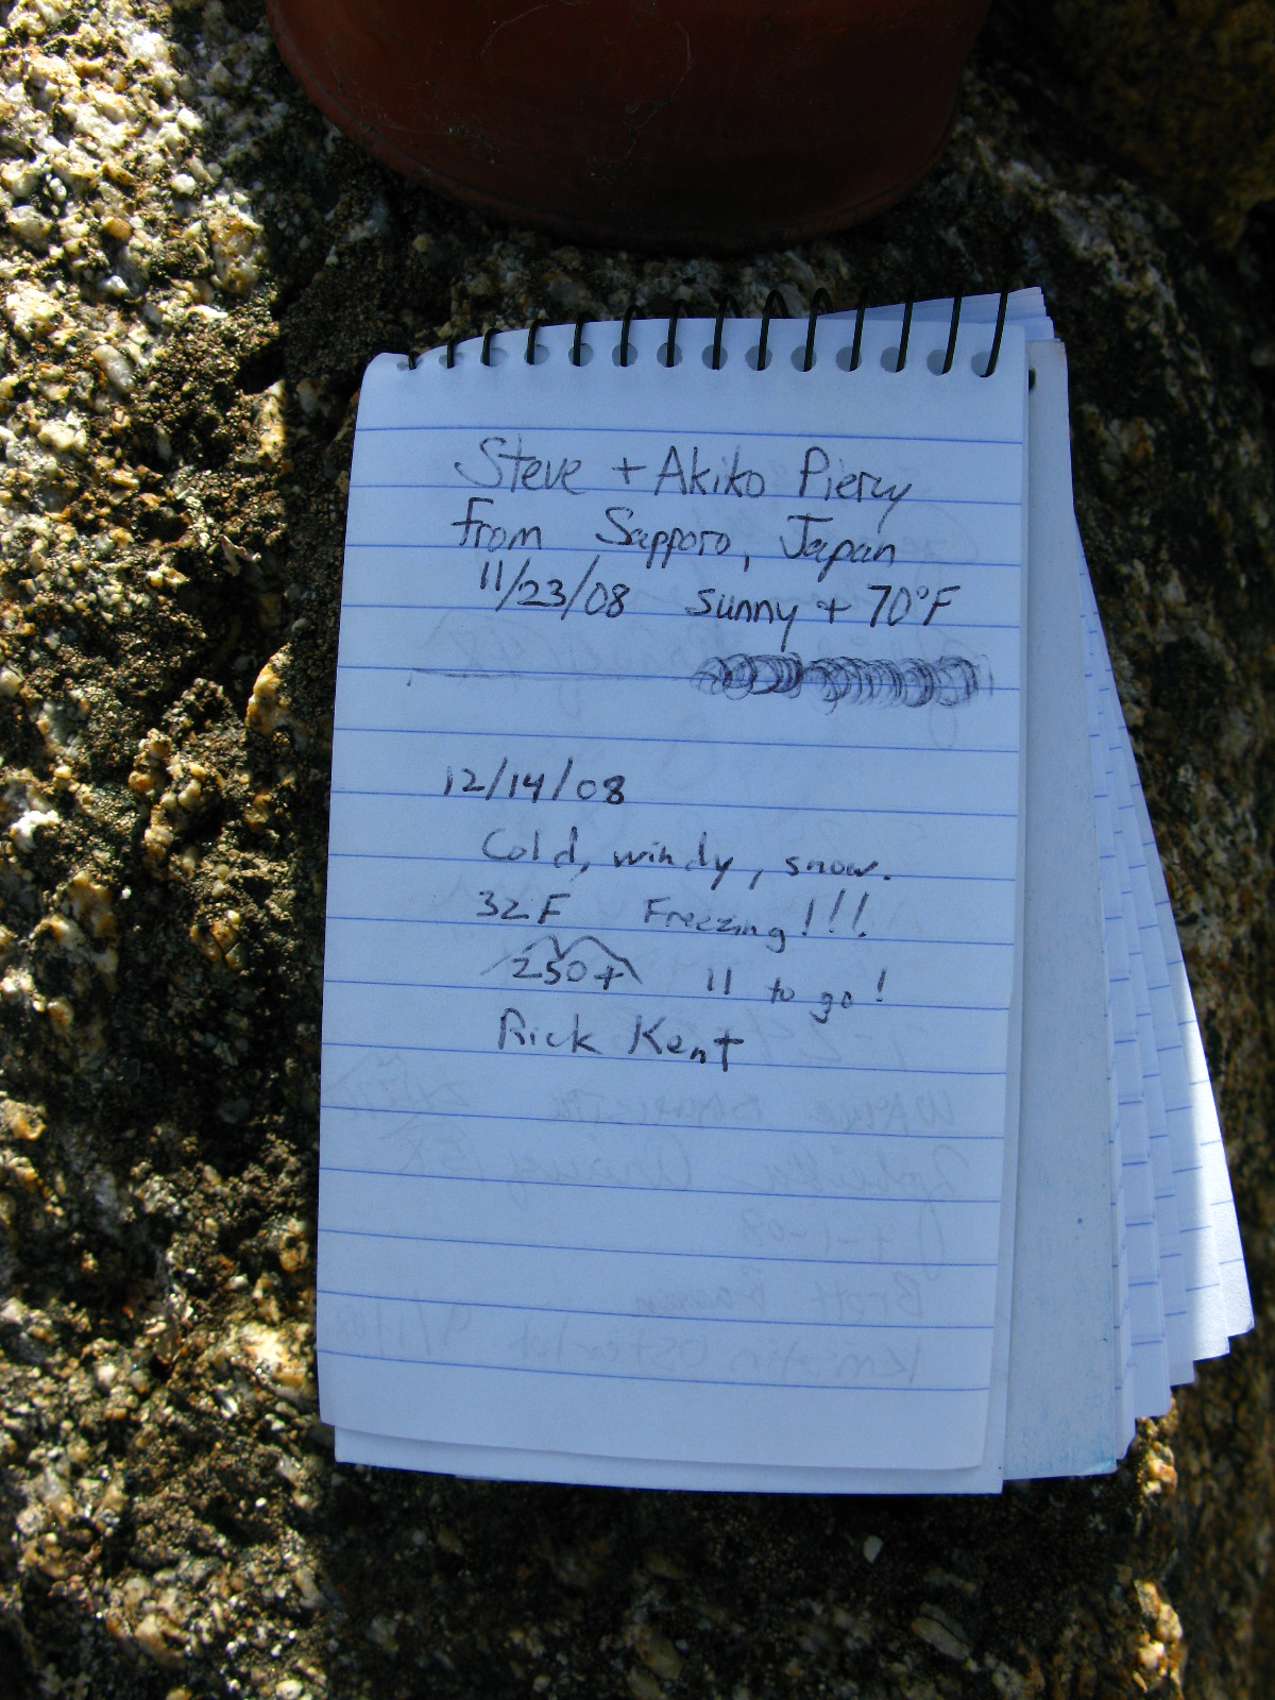 Steve + Akiko Piercy
From Sapporo, Japan
11/23/08 sunny + 70°F
12/14/08
Cold, windy, snow.
32F Freezing!!!
250+ 11 to go!
Rick Kent